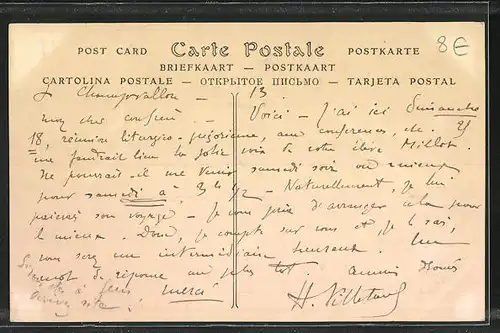 8€
POST CARD Carte Postale POSTKARTE
BRIEFKAART — POSTKAART
CARTOLINA POSTALE — ОТКРЫТОЕ ПИСЬМО — TARJETA POSTAL
Champvallon — 13
mon cher confrère. — Voici — J'ai ici dimanche
18, réunion liturgico-grégorienne, avec conférences, etc. Il
me faudrait bien la jolie voix de votre élève Millot
Ne pourrait-il me venir samedi soir ou mieux
pour samedi à 3h 1/2 — Naturellement, je lui
paierai son voyage — Je vous prie d'arranger cela pour
le mieux. Donc, je compte sur vous et, je le sais,
vous serez un intermédiaire heureux. Un
mot de réponse au plus tôt.
merci
H. Villetard